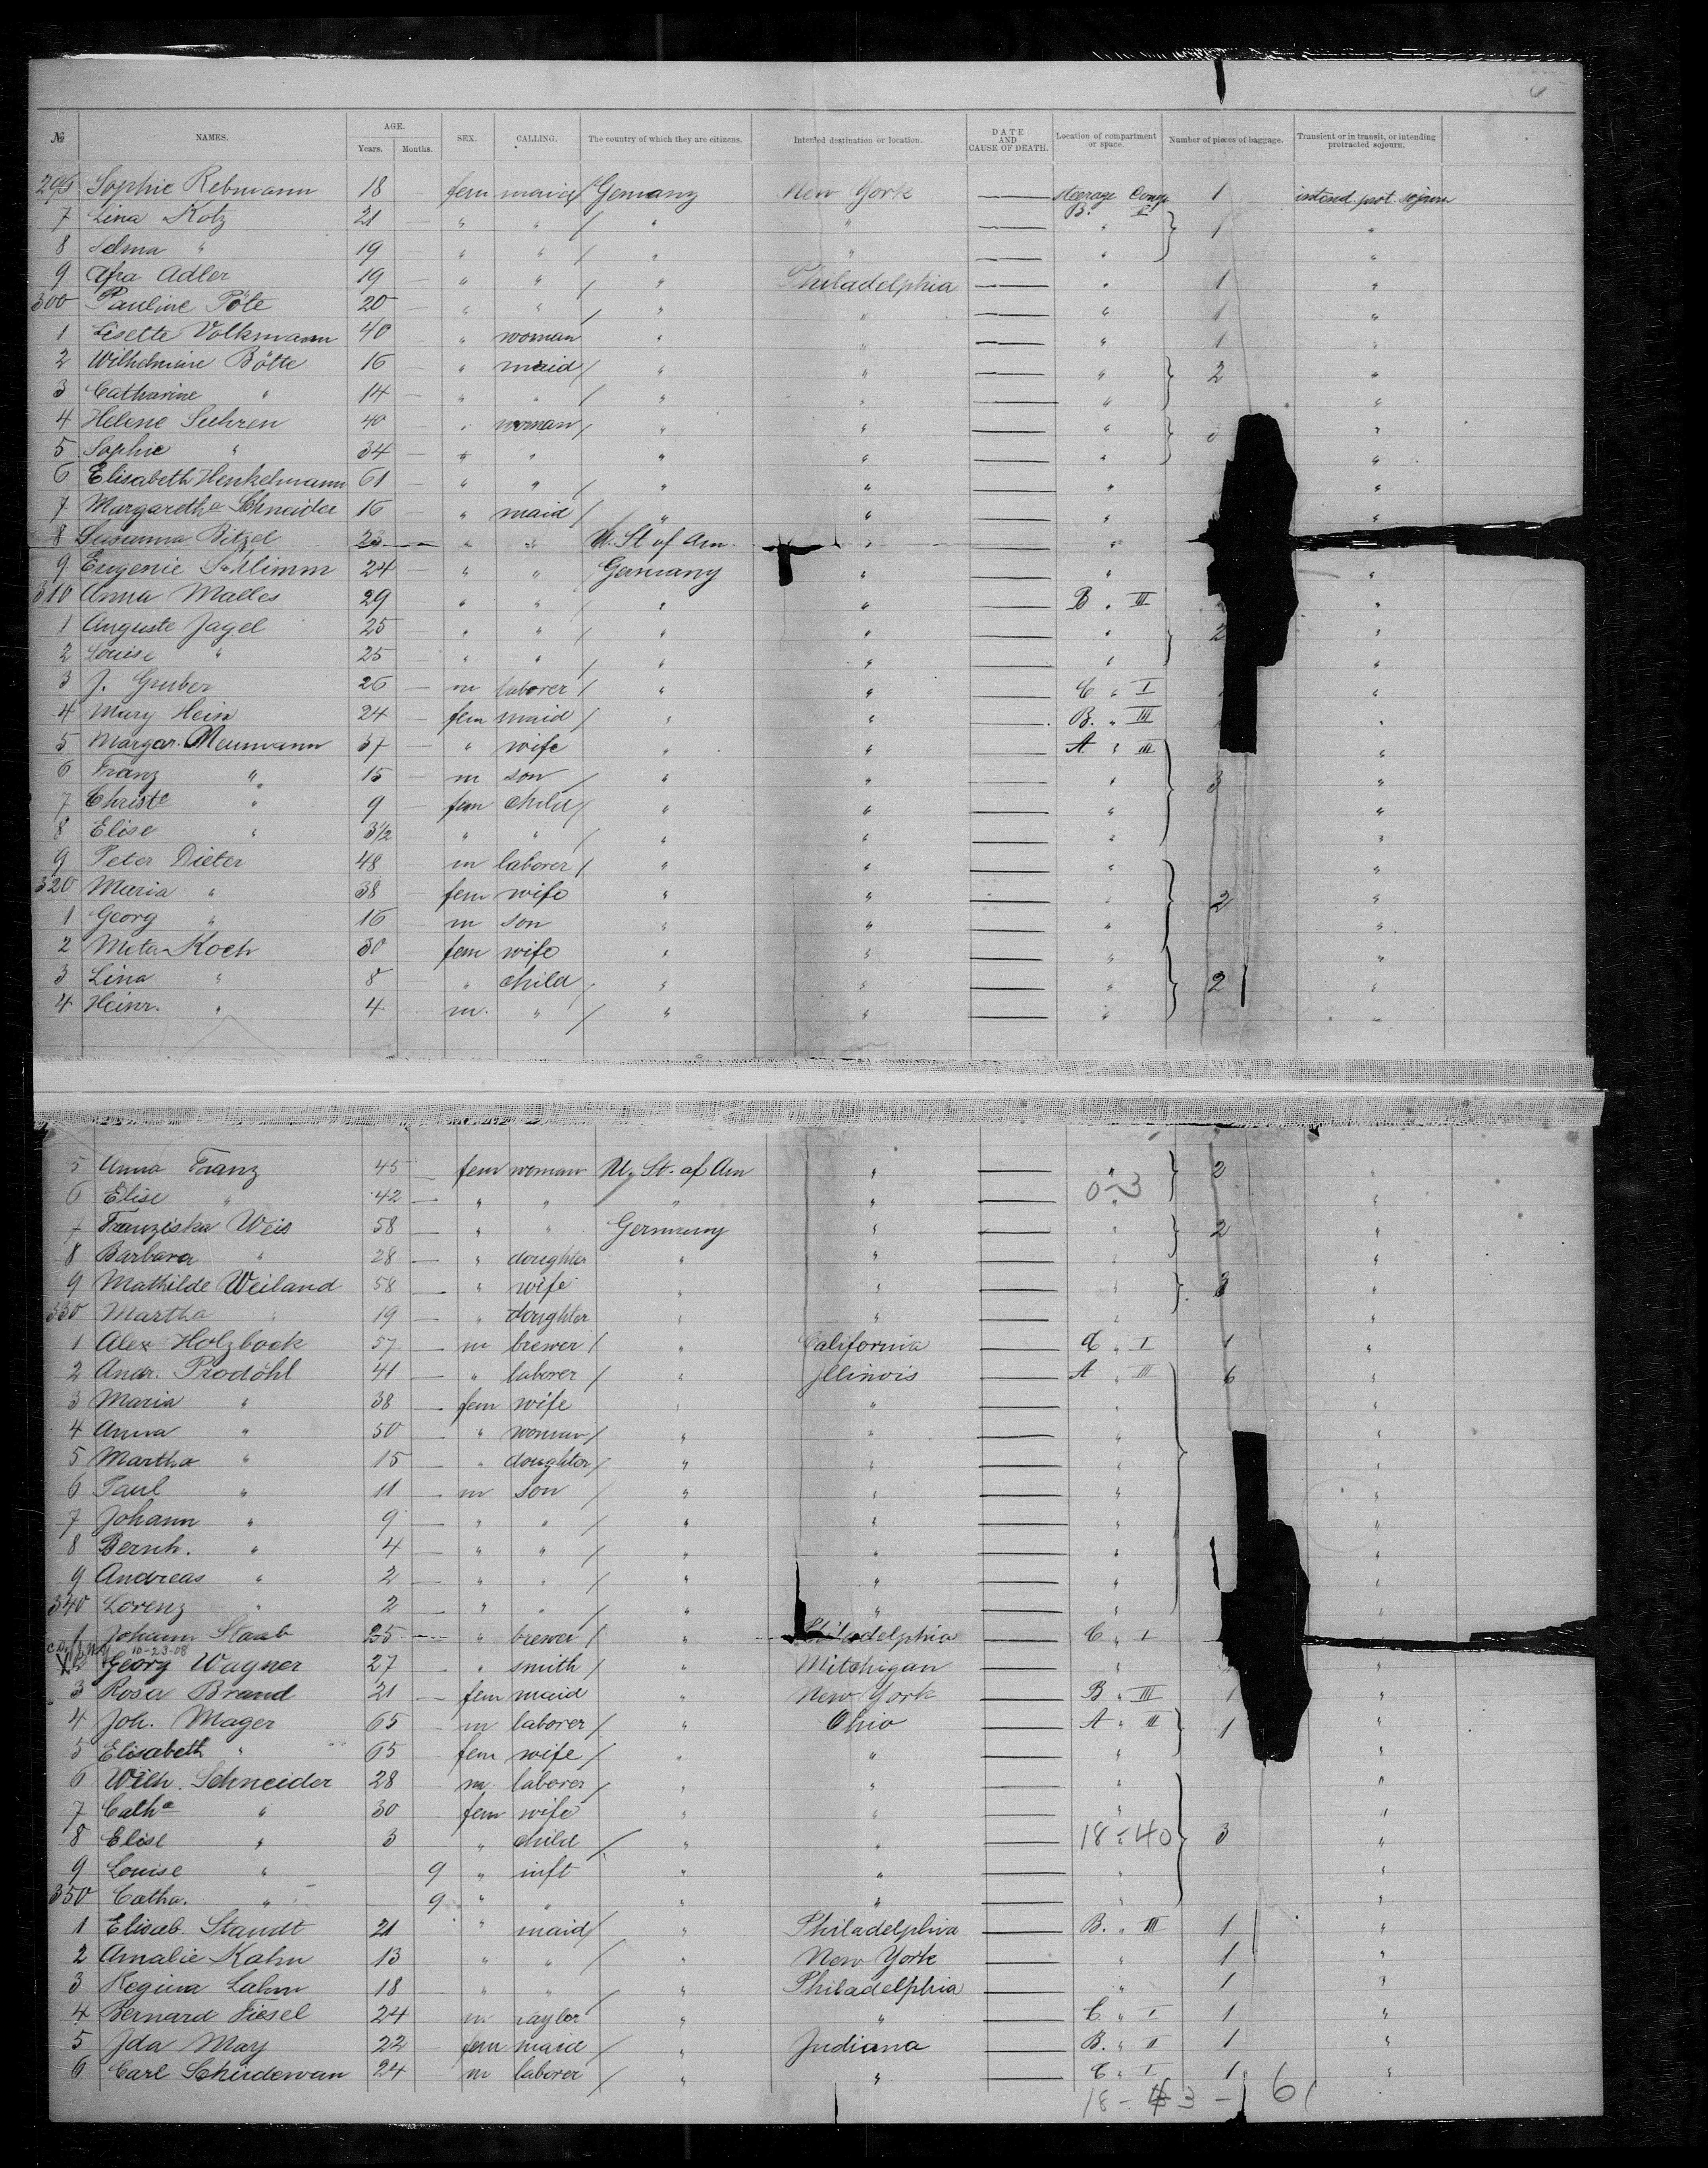 6
№ NAMES. AGE. Years. Months. SEX. CALLING. The country of which they are citizens. Intended destination or location. DATE AND CAUSE OF DEATH. Location of compartment or space. Number of pieces of baggage. Transient or in transit, or intending protracted sojourn.
296 Sophie Rebmann 18 — fem maid Germany New York — steerage Comp B. II 1 intend. prot. sojourn
7 Lina Kotz 21 — " " / " " — " } 1 "
8 Selma " 19 — " " / " " — " "
9 Afra Adler 19 — " " / " Philadelphia — " 1 "
300 Pauline Pöte 20 — " " / " " — " 1 "
1 Lisette Volkmann 40 — " woman " " — " 1 "
2 Wilhelmine Bölte 16 — " maid / " " — " } 2 "
3 Catharine " 14 — " " / " " — " "
4 Helene Suhren 40 — " woman / " " — " } "
5 Sophie " 34 — " " " " — " "
6 Elisabeth Henkelmann 61 — " " / " " — " "
7 Margaretha Schneider 16 — " maid / " " — " "
8 Susanna Bitzel 23 — " " U. St of Am. " — "
9 Eugenie Schlimm 24 — " " Germany " — " "
310 Anna Malles 29 — " " / " " — B " III "
1 Auguste Jagel 25 — " " / " " — " } 2 "
2 Louise " 25 — " " / " " — " "
3 J. Gruber 26 — m laborer / " " — C " I "
4 Mary Hein 24 — fem maid / " " — B. " III "
5 Margar. Neumann 37 — " wife " " — A " III } "
6 Franz " 15 — m son / " " — " 3 "
7 Christe " 9 — fem child / " " — " "
8 Elise " 3½ " " / " " — " "
9 Peter Dieter 48 — m laborer / " " — " } "
320 Maria " 38 — fem wife " " — " 2 "
1 Georg " 16 — m son " " — " "
2 Meta Koch 30 fem wife " " — " } "
3 Lina " 8 " child / " " — " 2 "
4 Heinr. " 4 m. " / " " — " "
5 Anna Franz 45 — fem woman U. St. of Am " — " } 2 "
6 Elise " 42 — " " " " — 0-3 "
7 Franziska Weis 58 — " " Germany " — " } 2 "
8 Barbara " 28 — " doughter " " — " "
9 Mathilde Weiland 58 — " wife " " — " } 3 "
330 Martha " 19 — " doughter " " — " "
1 Alex Holzbock 57 — m brewer / " California — C " I 1 "
2 Andr. Prodöhl 41 — " laborer / " Illinois — A " III 6 "
3 Maria " 38 — fem wife " " — " "
4 Anna " 50 — " woman / " " — " } "
5 Martha " 15 — " doughter / " " — " "
6 Paul " 11 — m son / " " — " "
7 Johann " 9 — " " / " " — " "
8 Bernh. " 4 — " " / " " — " "
9 Andreas " 2 — " " / " " — " "
340 Lorenz " 2 — " " / " " — " "
1 Johann Staab 25 — " brewer / " Philadelphia — C " I
10-23-08
X2 Georg Wagner 27 — " smith / " Mitchigan — " "
3 Rosa Brand 21 — fem maid " New York — B " III 1 "
4 Joh. Mager 65 — m laborer / " Ohio — A " III } 1 "
5 Elisabeth " 65 — fem wife / " " — " "
6 Wilh. Schneider 28 — m. laborer / " " — " "
7 Catha " 30 — fem wife " " — " "
8 Elise " 3 " child / " " — 18-40 } 3 "
9 Louise " — 9 " inft " " — " "
350 Catha. " — 9 " " " " — " "
1 Elisab. Staudt 21 " maid / " Philadelphia — B. " III 1 "
2 Amalie Kahn 13 " " / " New York — " 1 "
3 Regina Lahm 18 " " / " Philadelphia — " 1 "
4 Bernard Fiesel 24 — m taylor " " — C " I 1 "
5 Ida May 22 — fem maid / " Indiana — B. " II 1 "
6 Carl Schudewan 24 — m laborer / " " — C " I 1 "